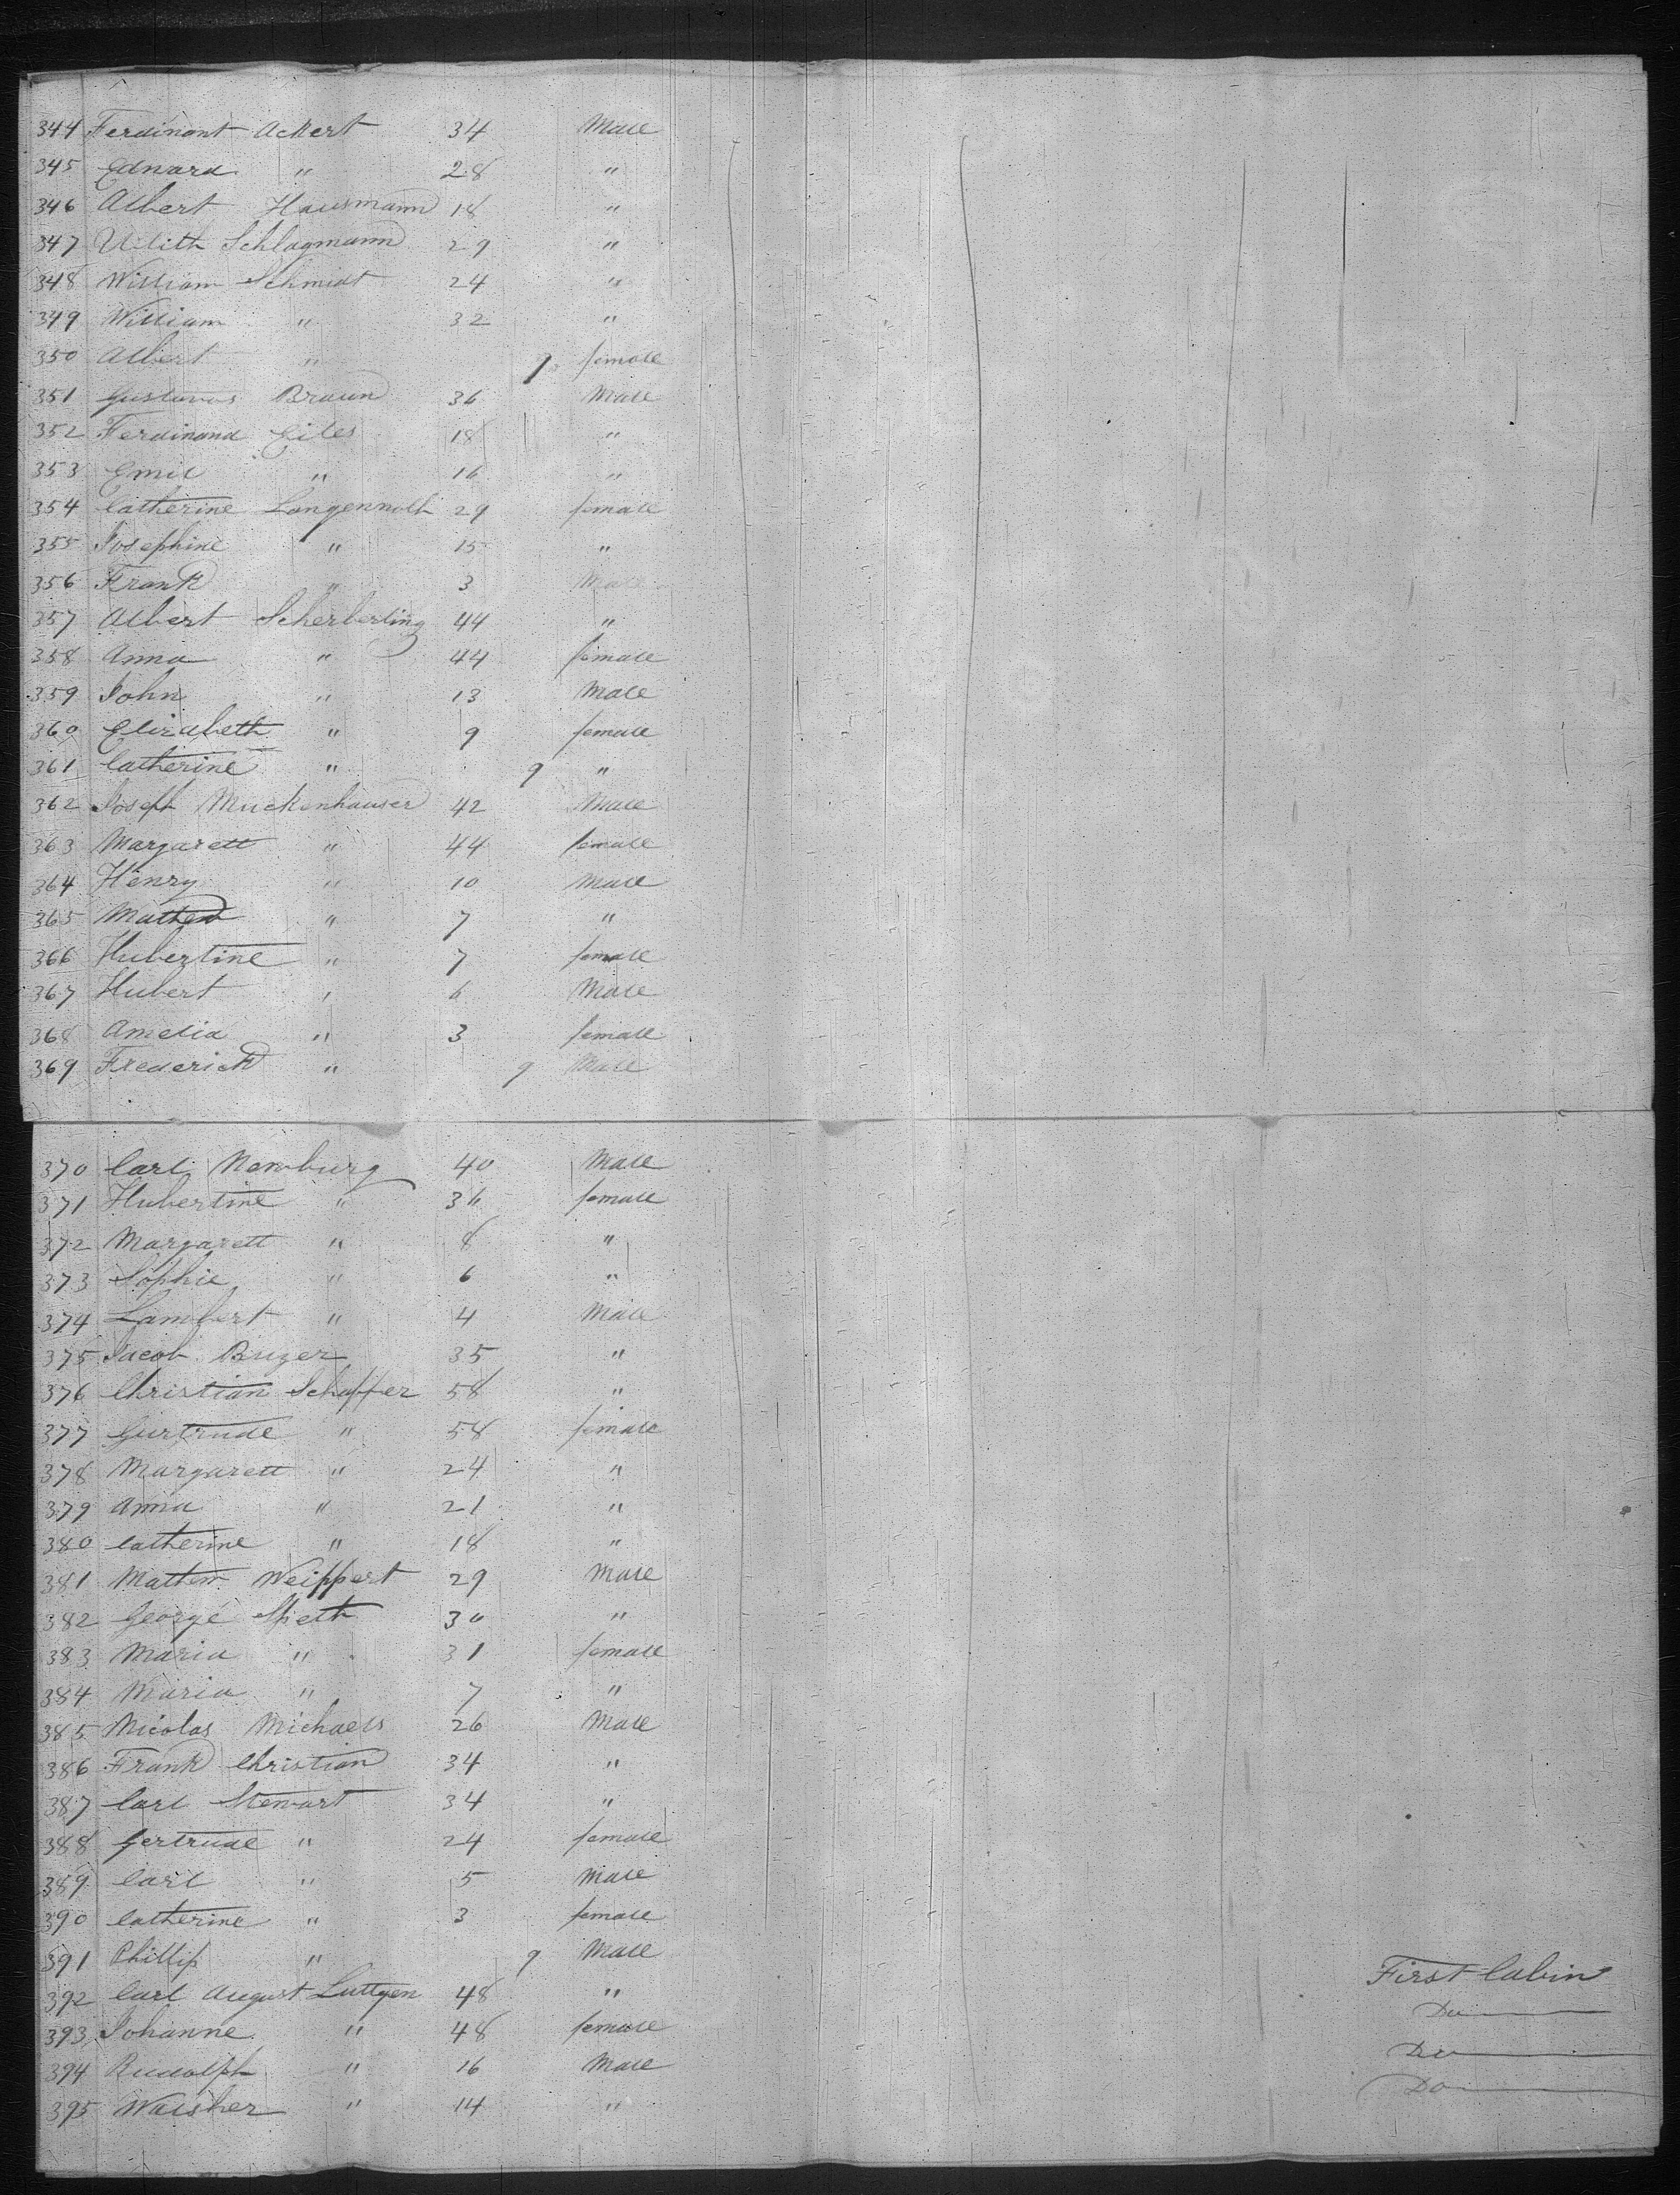 344 Ferdinant Ackert 34 Male
345 Edward " 28 "
346 Albert Hausmann 18 "
347 Ulith Schlagmann 29 "
348 William Schmidt 24 "
349 William " 32 "
350 Albert " 9 female
351 Gustavos Braun 36 Male
352 Ferdinand Eiles 18 "
353 Emil " 16 "
354 Catherine Langennolh 29 female
355 Josephine " 15 "
356 Frank " 3 Male
357 Albert Scherberling 44 "
358 Anna " 44 female
359 John " 13 Male
360 Elizabeth " 9 female
361 Catherine " 9 "
362 Joseph Muckenhauser 42 Male
363 Margarett " 44 female
364 Henry " 10 Male
365 Mathew " 7 "
366 Hubertine " 7 female
367 Hubert " 6 Male
368 Amelia " 3 female
369 Frederick " 9 Male
370 Carl Newburg 40 Male
371 Hubertine " 36 female
372 Margarett " 8 "
373 Sophie " 6 "
374 Lambert " 4 Male
375 Jacob Buger 35 "
376 Christian Schaffer 58 "
377 Gurtrude " 58 female
378 Margarett " 24 "
379 Anna " 21 "
380 Catherine " 18 "
381 Mathew Weippert 29 Male
382 George Speth 30 "
383 Maria " 31 female
384 Maria " 7 "
385 Nicolas Michaels 26 Male
386 Frank Christian 34 "
387 Carl Stewart 34 "
388 Gertrude " 24 female
389 Carl " 5 Male
390 Catherine " 3 female
391 Phillip " 9 Male
392 Carl August Luttgen 48 " First Cabin
393 Johanne " 48 female Do
394 Rudolph " 16 Male Do
395 Walther " 14 " Do